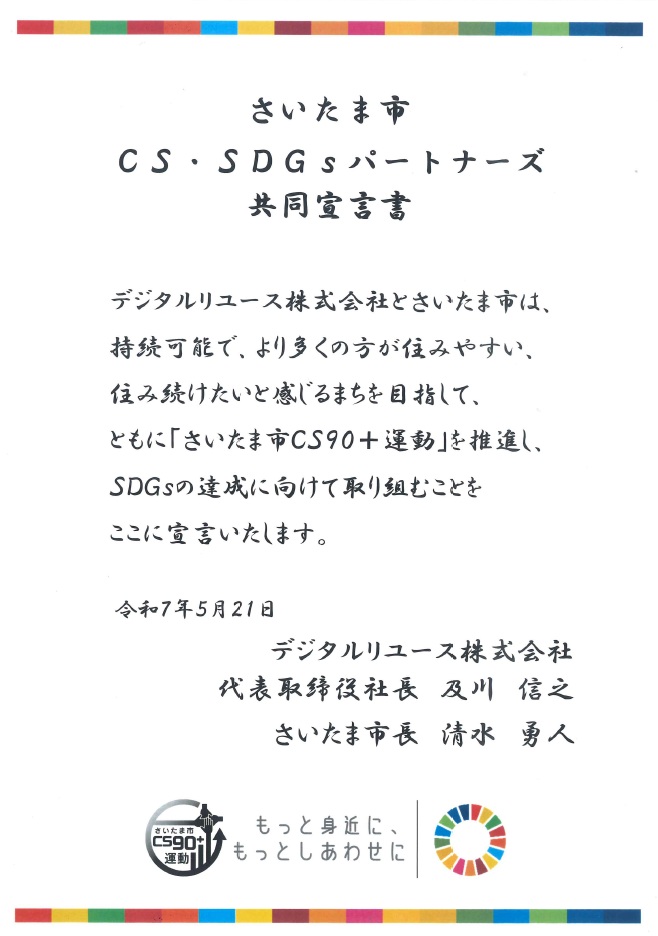 さいたま市
CS・SDGsパートナーズ
共同宣言書
デジタルリユース株式会社とさいたま市は、
持続可能で、より多くの方が住みやすい、
住み続けたいと感じるまちを目指して、
ともに「さいたま市CS90＋運動」を推進し、
SDGsの達成に向けて取り組むことを
ここに宣言いたします。
令和7年5月21日
デジタルリユース株式会社
代表取締役社長　及川　信之
さいたま市長　清水　勇人
さいたま市
CS90+
運動
もっと身近に、
もっとしあわせに